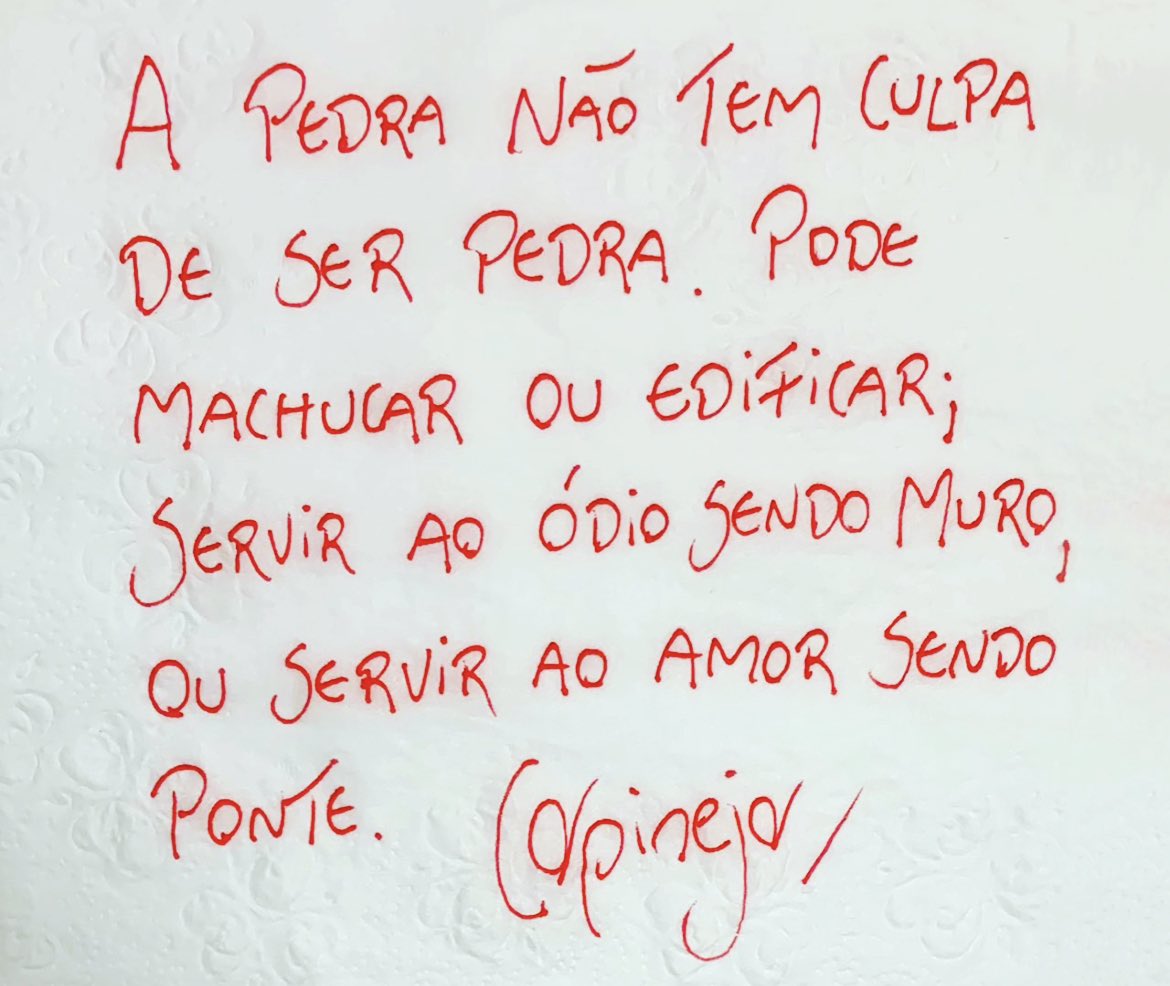 A PEDRA NÃO TEM CULPA
DE SER PEDRA. PODE
MACHUCAR OU EDIFICAR;
SERVIR AO ÓDIO SENDO MURO,
OU SERVIR AO AMOR SENDO
PONTE. Carpinejar